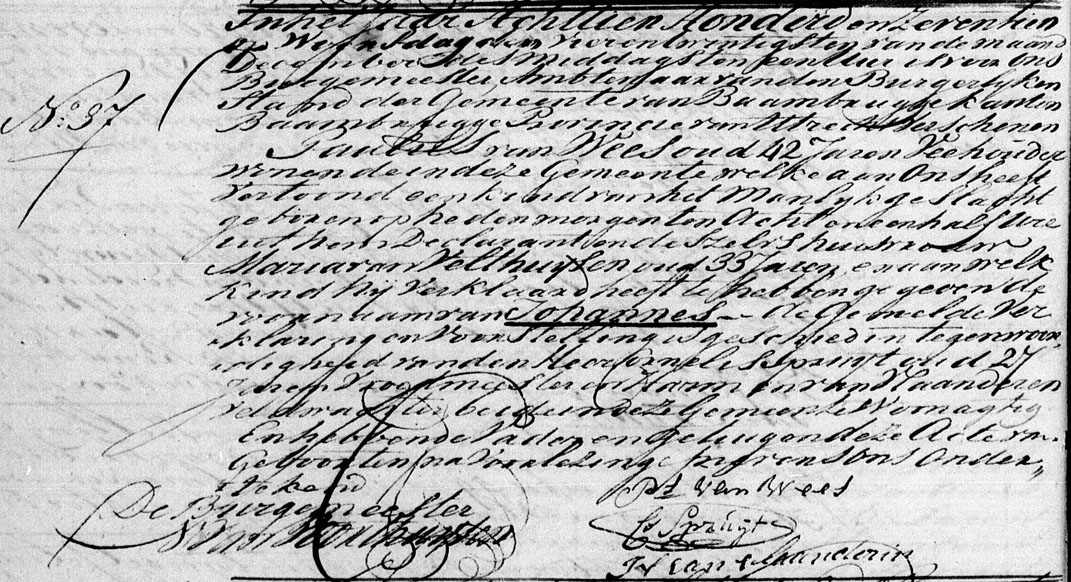 In het Jaar Achttien Honderd en Zeventien
op Woensdag den vierentwintigsten van de maand
December des Middags ten een Uur is voor Ons
Burgemeester Ambtenaar van den Burgerlyken
Staand der Gemeente van Baambrugge kanton
Baambrugge Provincie van Utrecht Verschenen
No. 37
Paulus van Wees oud 42 Jaren Veehouder
wonende in deze Gemeente welke aan Ons heeft
Vertoond een kind van het Manlyk geslagt
geboren op heden morgen ten Acht en een half Ure
uit hem Declarant en deszelvs huisvrouw
Maria van Velthuysen oud 33 Jaren, en aan welk
kind hy Verklaard heeft te hebben gegeven de
voornaam van Johannes de Gemelde Ver
klaring en Voorstelling is geschied in tegenwoor
digheid van den Heer Cornelis Spruyt oud 27
Jaren en Harm van Vlaanderen
veldwagter beide in deze Gemeente Woonagtig
En hebben de Vader en Getuigen deze Acte
Geboorten na Voorlezing Ons Onder„
tekend
De Burgemeester
Pl van Wees
C Spruijt
H van vlaanderen